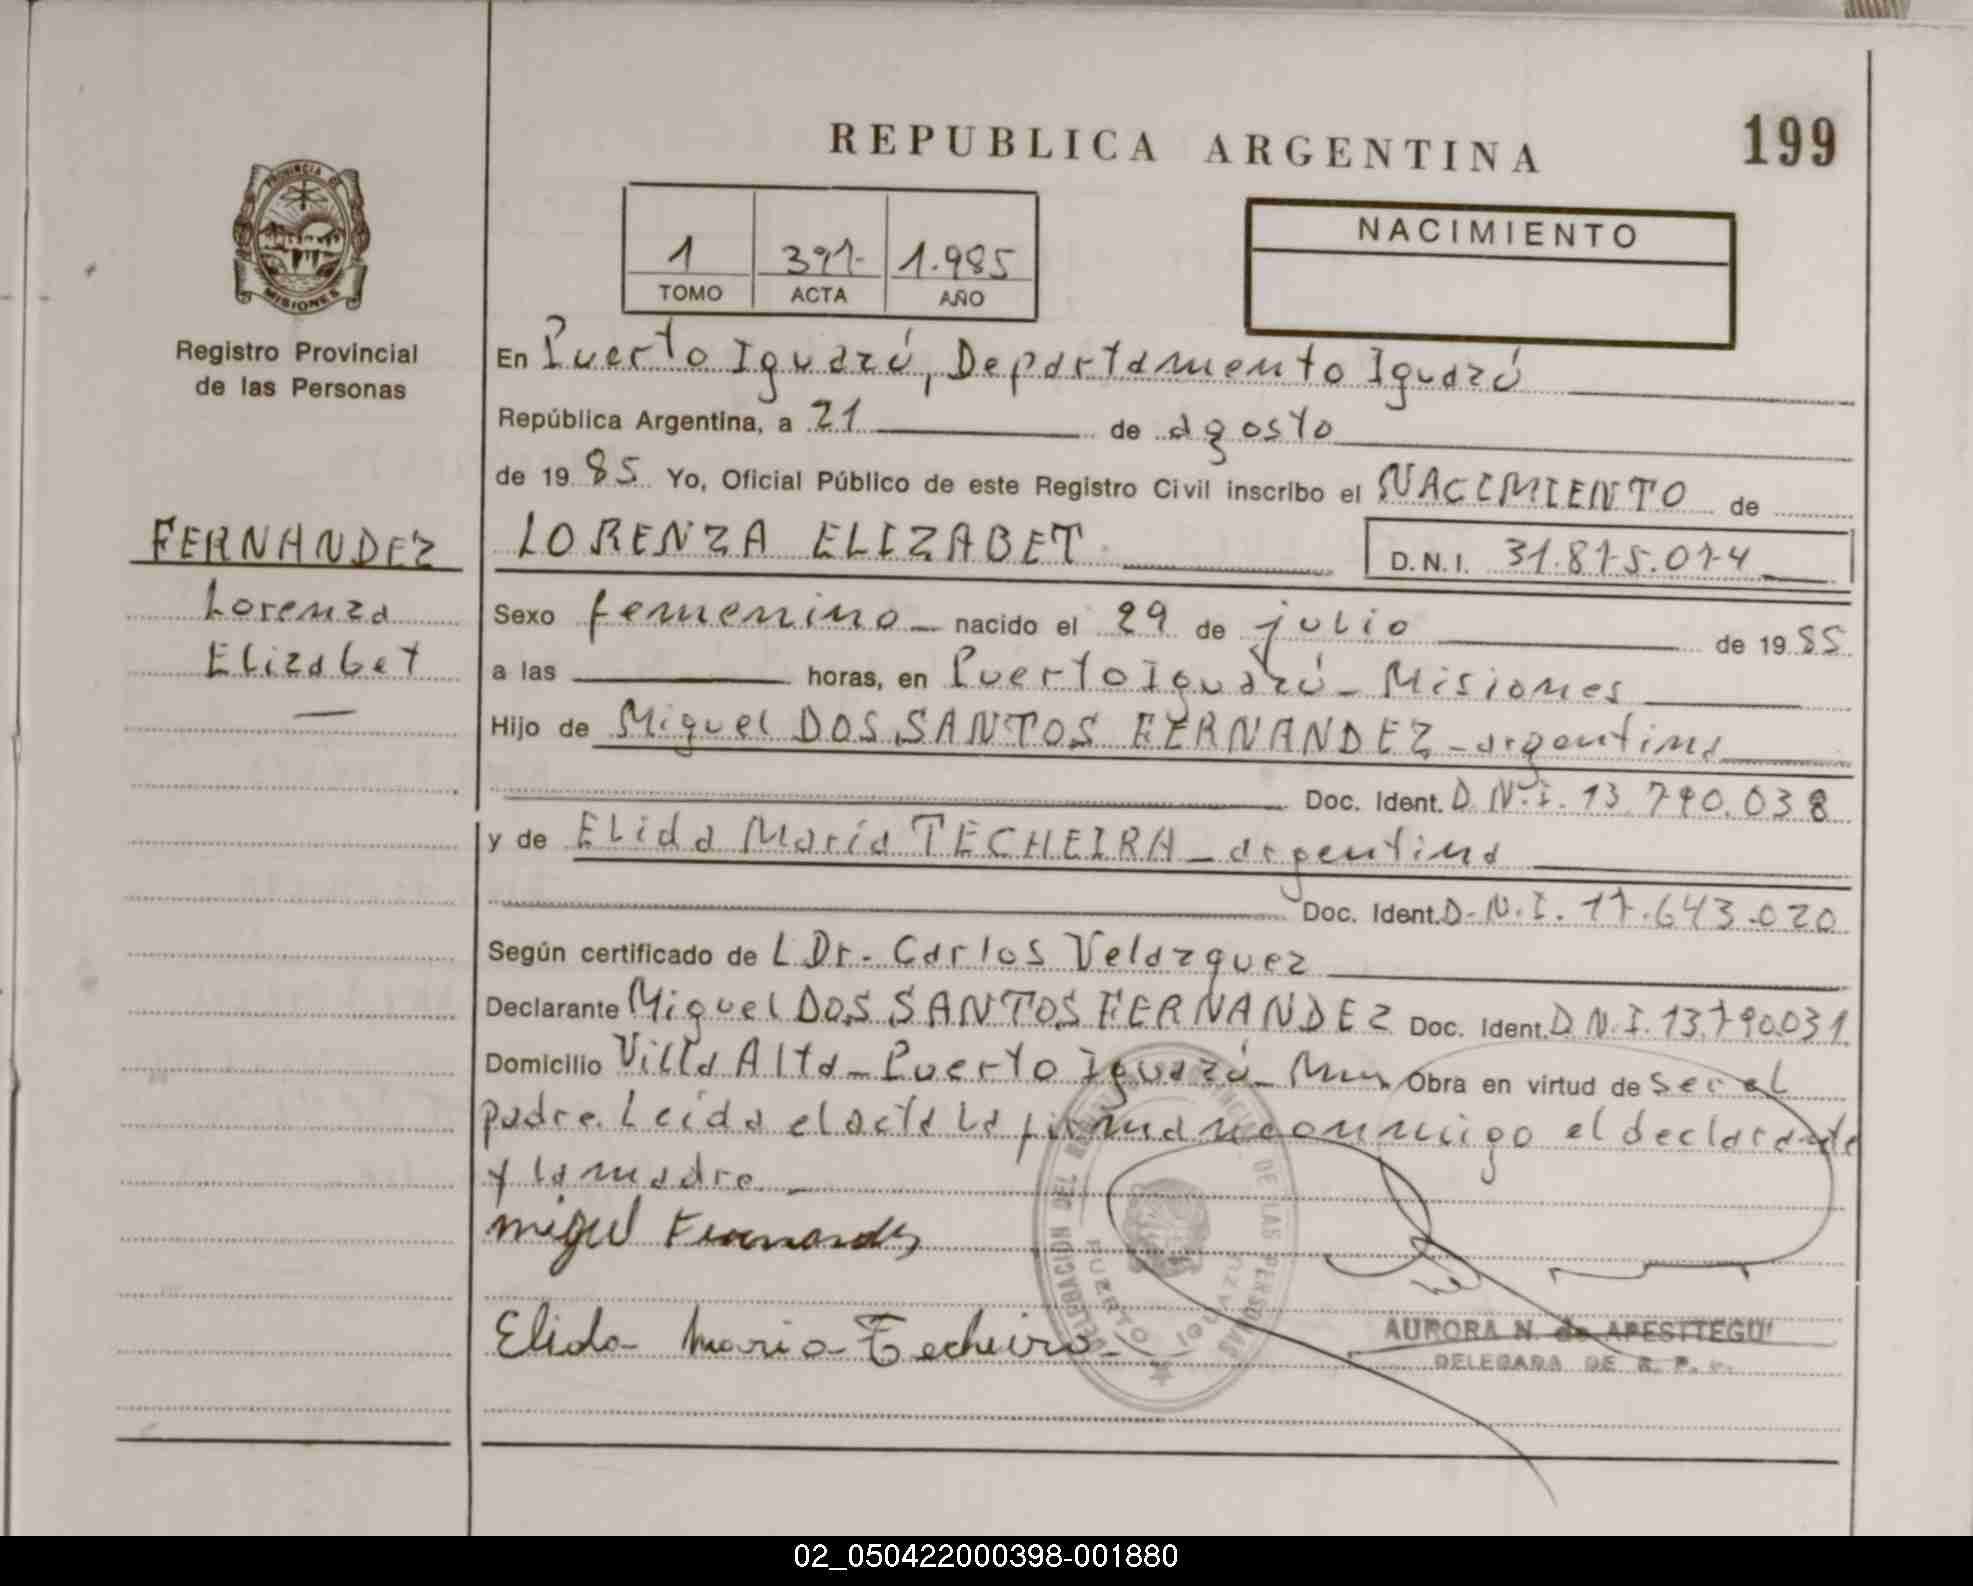 REPUBLICA ARGENTINA
199
PROVINCIA DE
MISIONES
Registro Provincial
de las Personas
1 397- 1.985
TOMO ACTA AÑO
NACIMIENTO
En Puerto Iguazú, Departamento Iguazú
República Argentina, a 21 de agosto
de 19 85 Yo, Oficial Público de este Registro Civil inscribo el NACIMIENTO de
FERNANDEZ
Lorenza
Elizabet
LORENZA ELIZABET D.N.I. 31.875.074
Sexo femenino nacido el 29 de julio de 19 85
a las horas, en Puerto Iguazú - Misiones
Hijo de Miguel DOS SANTOS FERNANDEZ - argentina
Doc. Ident. D.N.I. 13.790.038
y de Elida María TECHEIRA - argentina
Doc. Ident. D.N.I. 17.643.020
Según certificado de L Dr. Carlos Velazquez
Declarante Miguel DOS SANTOS FERNANDEZ Doc. Ident. D.N.I. 13.790.031
Domicilio Villa Alta - Puerto Iguazú - Obra en virtud de ser el
padre. Leída el acta la firman conmigo el declarante
y la madre -
Miguel Fernandes
Elida Maria Techeira
DELEGACION DEL REGISTRO PROVINCIAL DE LAS PERSONAS
PUERTO IGUAZU
AURORA N. de APESTTEGUI
DELEGADA DE R. P.
02_050422000398-001880